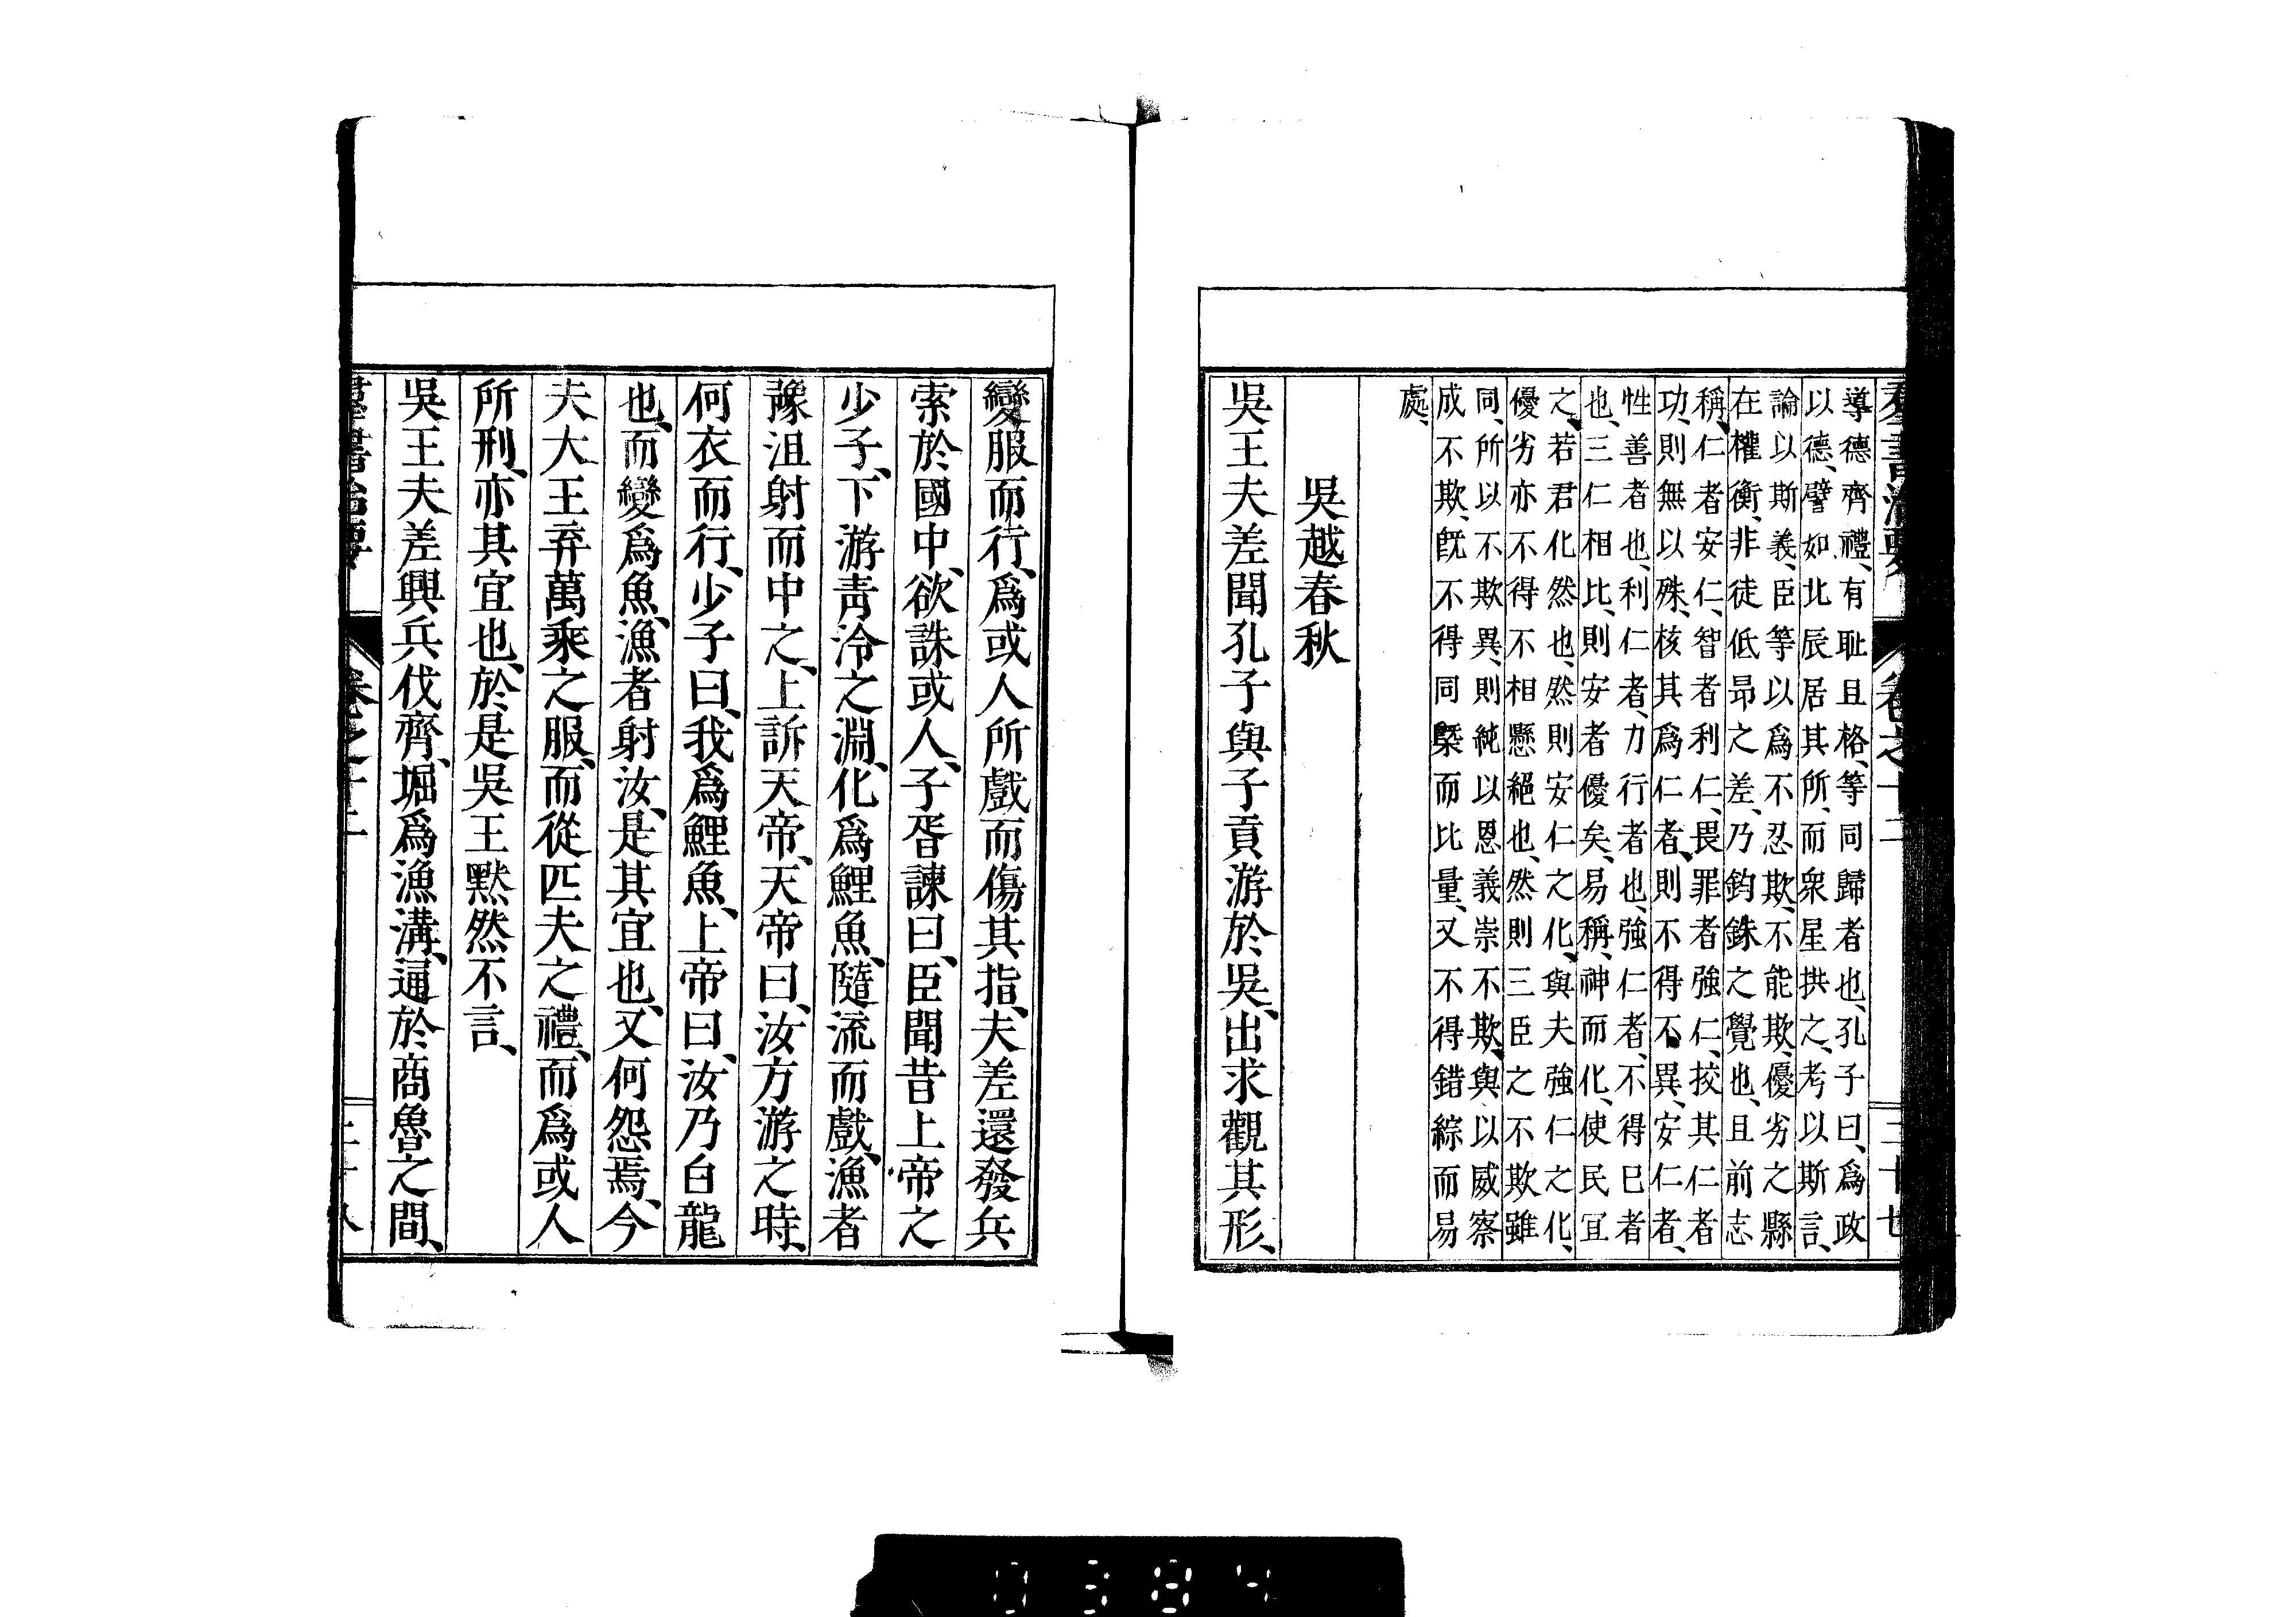 羣書治要 卷之十二 三十七
導德齊禮、有耻且格、等同歸者也、孔子曰、爲政
以德、譬如北辰居其所、而衆星拱之、考以斯言、
論以斯義、臣等以爲不忍欺、不能欺、優劣之縣
在權衡、非徒低昻之差、乃鈞銖之覺也、且前志
稱、仁者安仁、智者利仁、畏罪者強仁、挍其仁者
功、則無以殊、核其爲仁者、則不得不異、安仁者、
性善者也、利仁者、力行者也、強仁者、不得已者
也、三仁相比、則安者優矣、易稱、神而化、使民宜
之、若君化然也、然則安仁之化、與夫強仁之化、
優劣亦不得不相懸絕也、然則三臣之不欺雖
同、所以不欺異、則純以恩義崇不欺、與以威察
成不欺、旣不得同槩而比量、又不得錯綜而易
處、
吳越春秋
吳王夫差聞孔子與子貢游於吳、出求觀其形、
變服而行、爲或人所戲而傷其指、夫差還發兵
索於國中、欲誅或人、子胥諫曰、臣聞昔上帝之
少子、下游青泠之淵、化爲鯉魚、隨流而戲、漁者
豫沮射而中之、上訴天帝、天帝曰、汝方游之時、
何衣而行、少子曰、我爲鯉魚、上帝曰、汝乃白龍
也、而變爲魚、漁者射汝、是其宜也、又何怨焉、今
夫大王弃萬乘之服、而從匹夫之禮、而爲或人
所刑、亦其宜也、於是吳王默然不言、
吳王夫差興兵伐齊、堀爲漁溝、通於商魯之間、
羣書治要 卷之十二 三十八
0384